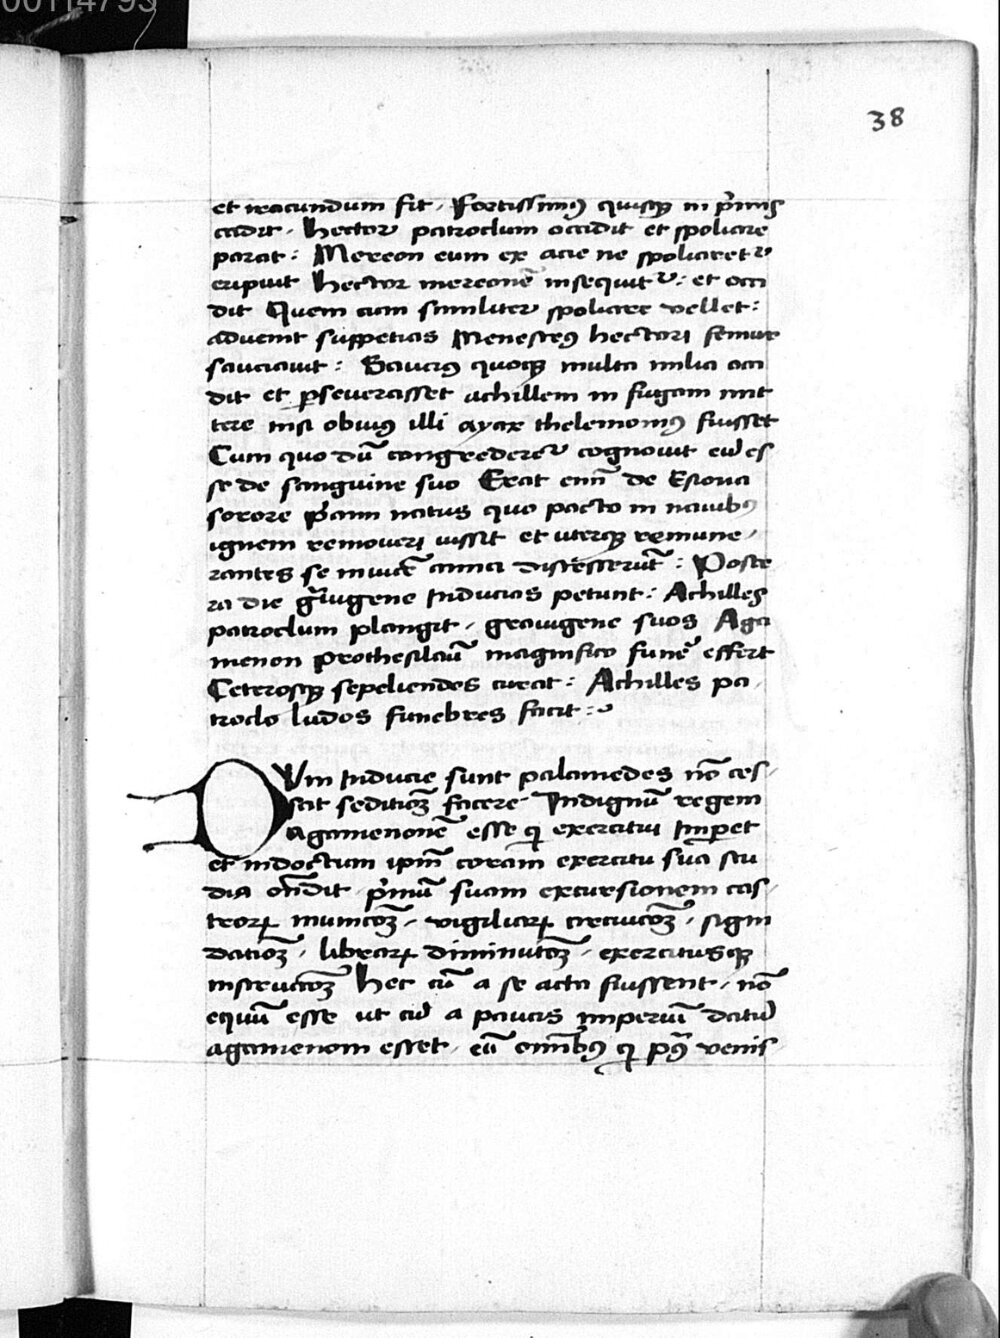 00114793
38
et iracundum fit. Fortissimꝰ quisqꝫ in p̄mis
cadit. Hector patroclum occidit et spoliare
parat: Mereon eum ex acie ne spoliaret᷑
eripuit Hector mereonē insequit᷑: et occi
dit Quem cum similiter spoliare vellet:
advenit suppetias Menesteꝰ hectori femur
sauciavit: Sauciꝰ quoqꝫ multa milia occi
dit et ꝑseverasset achillem in fugam mit
tere nisi obviꝰ illi ayax thelemoniꝰ fuisset
Cum quo dū congrederet᷑ cognovit eū es
se de sanguine suo Erat enī de Esiona
sorore p̄ami natus quo pacto in navibꝰ
ignem removeri iussit et uterqꝫ remune
rantes se invicē amici discesserūt: Poste
ra die gͣiugene Inducias petunt: Achilles
patroclum plangit. graiugene suos Aga
menon prothesilaū magnifico funē effert
Ceterosqꝫ sepeliendos curat: Achilles pa
troclo ludos funebres facit:
DUm Inducie sunt palamedes nō ces
sat seditiōꝫ facere Indignū regem
agamenonē esse qͥ exercitui Imꝑet
et indoctum ip̄m coram exercitu sua stu
dia on̄dit p̄mū suam excursionem cas
troꝝ municōꝫ. vigiliaꝝ circuicōꝫ. signi
datiōꝫ. libraꝝ diminutōꝫ. exercitusqꝫ
instructōꝫ Hec cū a se acta fuissent. nō
equū esse ut cū a paucis imperiū datū
agamenoni esset. eū om̄ibꝰ qͥ pꝰ venis